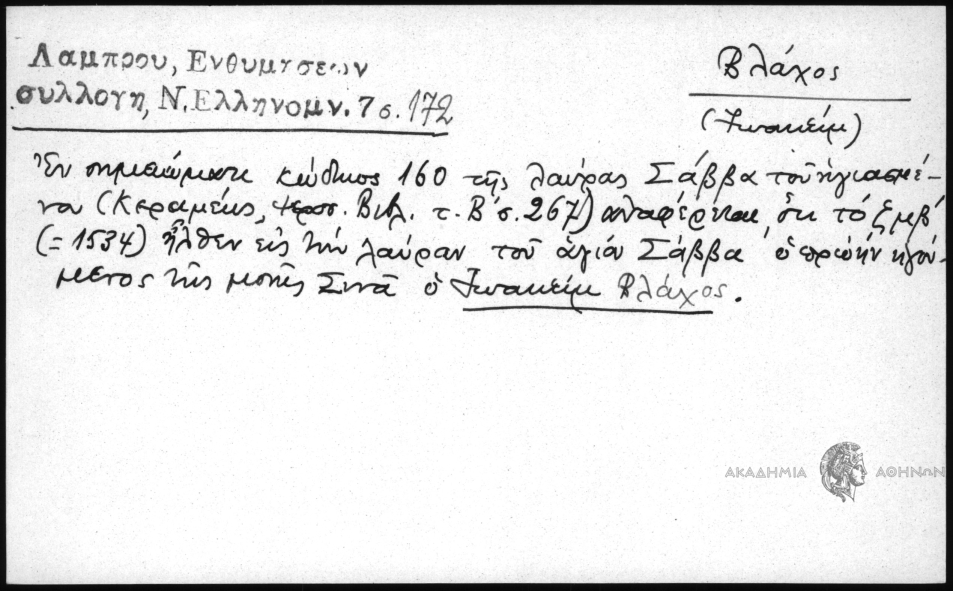 Λαμπρου, Ενθυμησεων
συλλογη, Ν. Ελληνομν. 7 σ. 172
Βλάχος
(Ἰωακεὶμ)
Ἐν σημειώματι κώδικος 160 τῆς λαύρας Σάββα τοῦ ἡγιασμέ-
νου (Κεραμεύς, Ἱεροσ. Βιβλ. τ. Β' σ. 267) ἀναφέρεται, ὅτι τὸ ζμβ'
(=1534) ἦλθεν εἰς τὴν λαύραν τοῦ ἁγίου Σάββα ὁ πρώην ἡγού-
μενος τῆς μονῆς Σινᾶ ὁ Ἰωακεὶμ Βλάχος.
ΑΚΑΔΗΜΙΑ ΑΘΗΝΩΝ